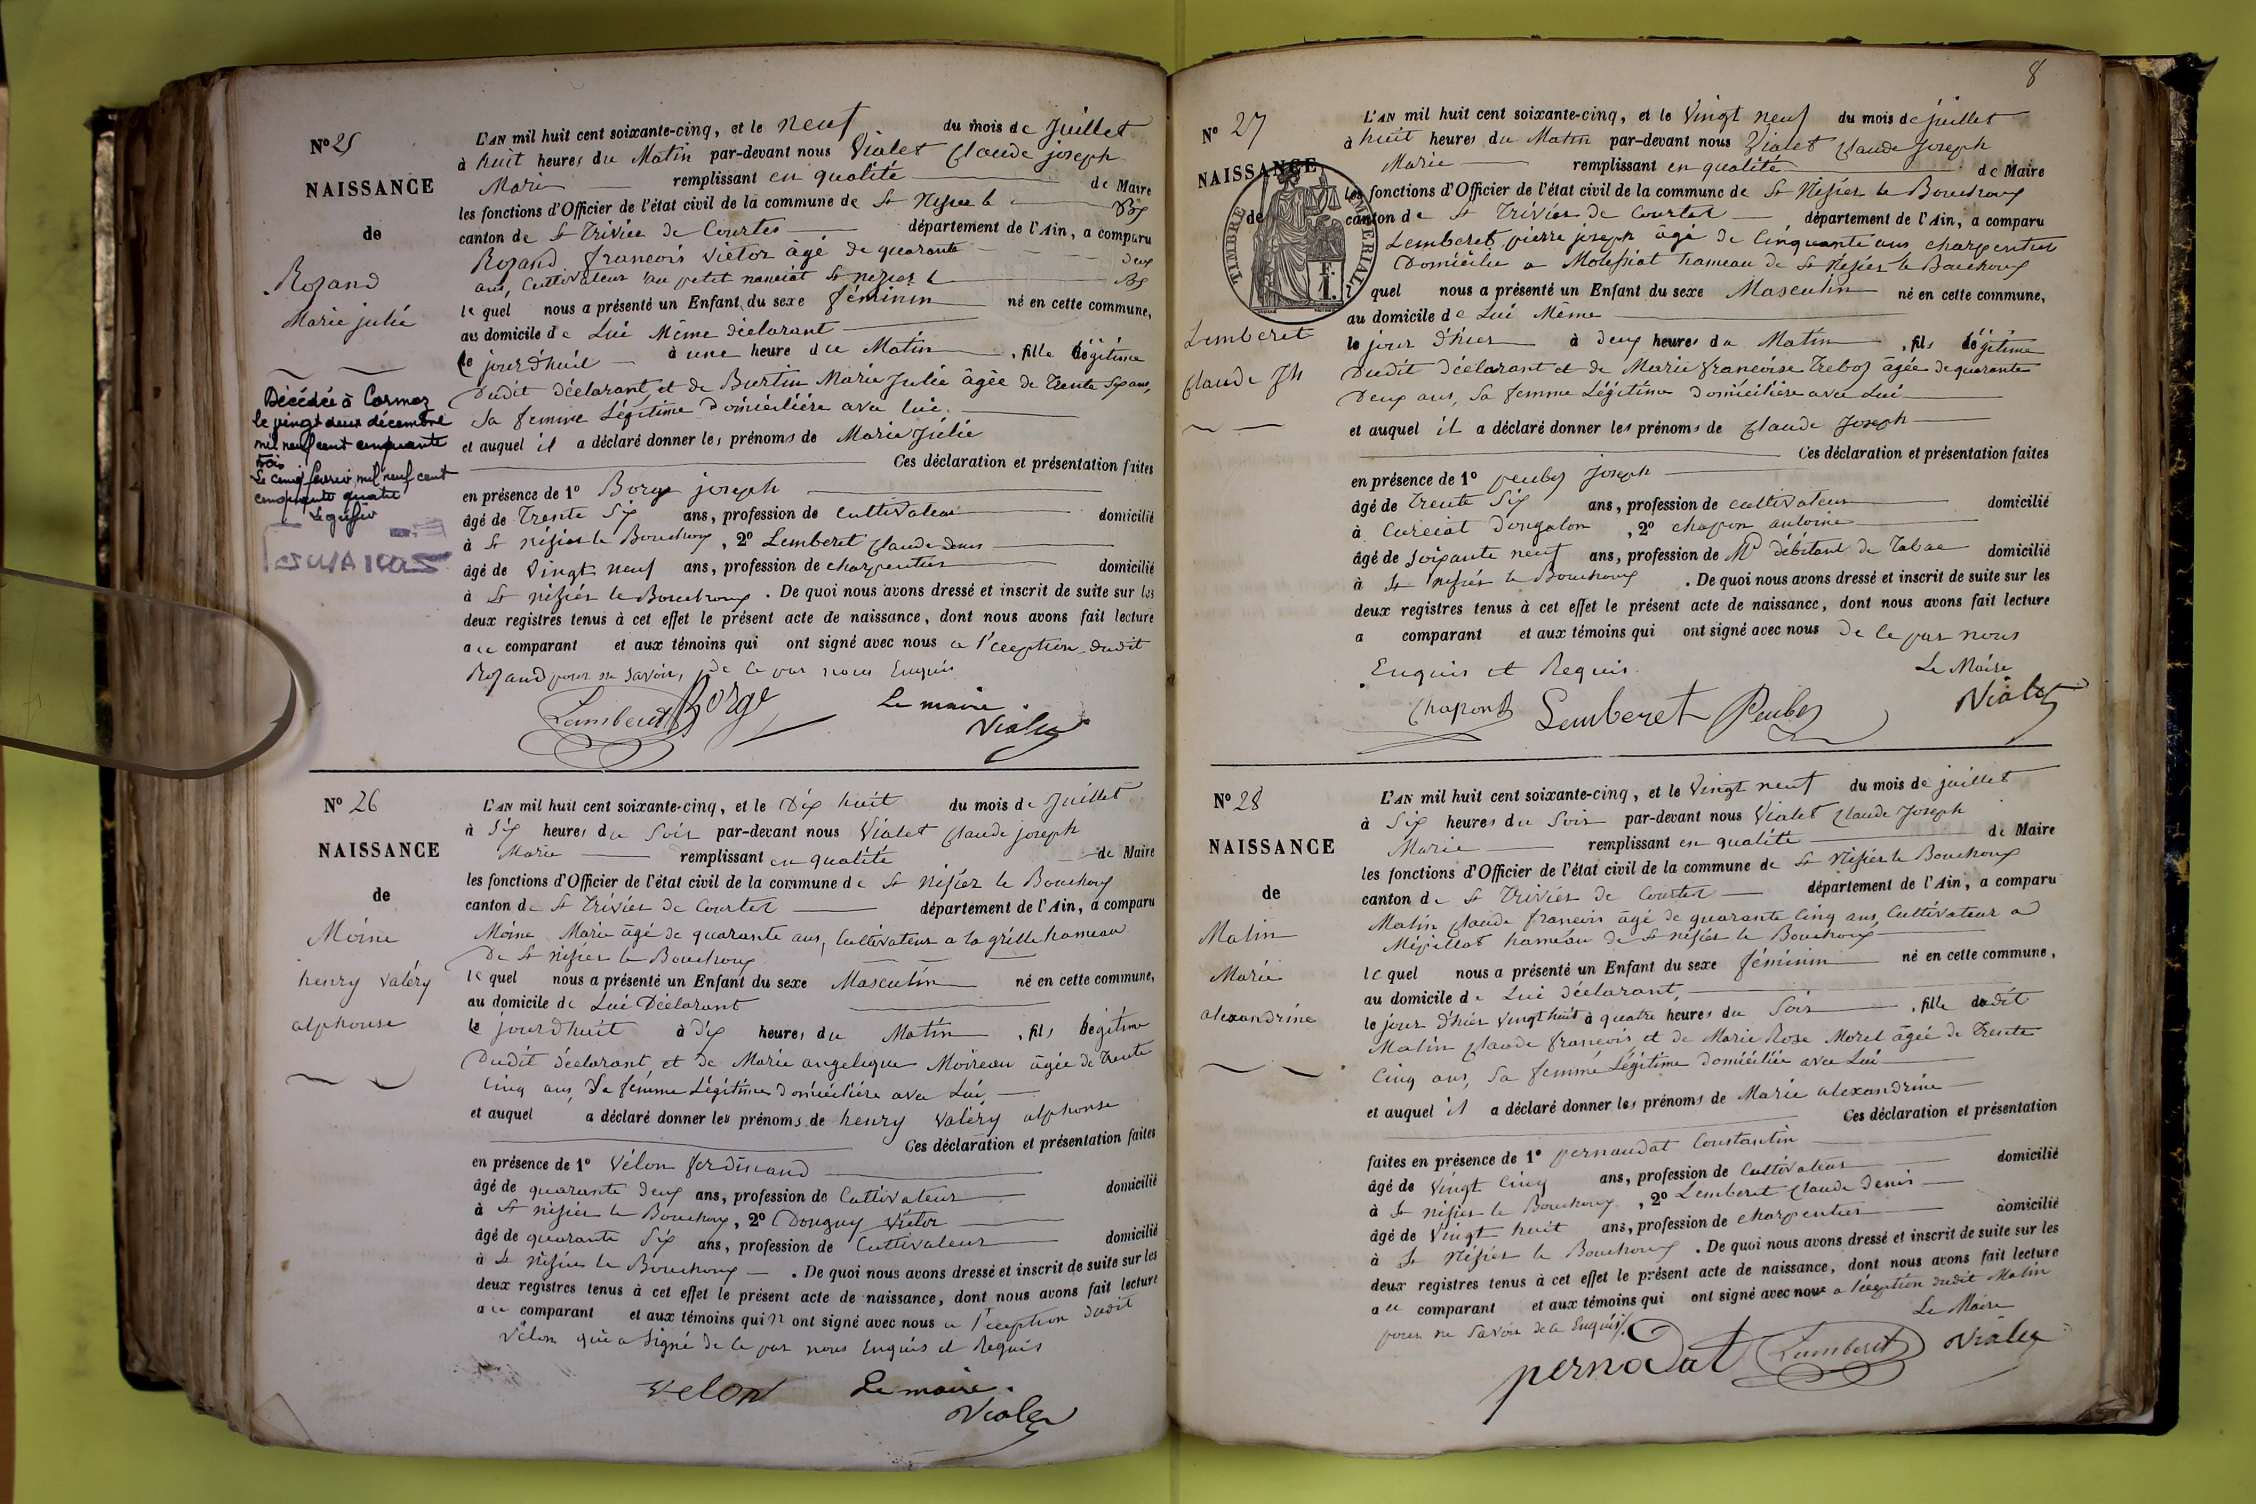 N° 25
NAISSANCE
de
Rozand
Marie julie
Décédée à Cormoz
le vingt deux décembre
mil neuf cent cinquante
trois
Le cinq février mil neuf cent
cinquante quatre
Le greffier
L'AN mil huit cent soixante-cinq, et le neuf du mois de Juillet
à huit heures du Matin par-devant nous Vialet Claude joseph
Marie remplissant en qualité de Maire
les fonctions d'Officier de l'état civil de la commune de St Nizier le Bx
canton de St Trivier de Courtes département de l'Ain, a comparu
Rozand francois victor âgé de quarante deux
ans, Cultivateur au petit nanciat St nizier le Bx
le quel nous a présenté un Enfant du sexe féminin né en cette commune,
au domicile de Lui Même déclarant
le jourd'huit à une heure du Matin, fille légitime
Dudit déclarant et de Burtin Marie Julie âgée de Trente Six ans,
Sa femme Légitime Domiciliére avec lui.
et auquel il a déclaré donner les prénoms de Marie Julie
Ces déclaration et présentation faites
en présence de 1° Borge joseph
âgé de Trente Six ans, profession de cultivateur domicilié
à St nizier le Bouchoux, 2° Lemberet Claude Denis
âgé de Vingt neuf ans, profession de charpentier domicilié
à St nizier le Bouchoux. De quoi nous avons dressé et inscrit de suite sur les
deux registres tenus à cet effet le présent acte de naissance, dont nous avons fait lecture
au comparant et aux témoins qui ont signé avec nous a l'éception dudit
Rozand pour ne savoir, de ce par nous Enquis
Lemberet Borge Le maire
Vialet
N° 26
NAISSANCE
de
Moine
henry valéry
alphonse
L'AN mil huit cent soixante-cinq, et le Dix huit du mois de Juillet
à Six heures du Soir par-devant nous Vialet Claude joseph
Marie remplissant en qualité de Maire
les fonctions d'Officier de l'état civil de la commune de St Nizier le Bouchoux
canton de St Trivier de Courtes département de l'Ain, a comparu
Moine Marie âgé de quarante ans, Cultivateur a la grille hameau
De St nizier le Bouchoux
le quel nous a présenté un Enfant du sexe Masculin né en cette commune,
au domicile de Lui Déclarant
le jourd'huit à Dix heures du Matin, fils légitime
Dudit déclarant et de Marie angelique Moireau âgée de Trente
Cinq ans, Sa femme Légitime Domiciliére avec Lui,
et auquel a déclaré donner les prénoms de henry valéry alphonse
Ces déclaration et présentation faites
en présence de 1° Vélon ferdinand
âgé de quarante Deux ans, profession de Cultivateur domicilié
à St nizier le Bouchoux, 2° Douguy Victor
âgé de quarante Six ans, profession de Cultivateur domicilié
à St nizier le Bouchoux. De quoi nous avons dressé et inscrit de suite sur les
deux registres tenus à cet effet le présent acte de naissance, dont nous avons fait lecture
au comparant et aux témoins qui n ont signé avec nous a l'éception dudit
Vélon qui a Signé de ce par nous Enquis et Requis
velon Le maire.
Vialet
8
N° 27
NAISSANCE
de
TIMBRE IMPÉRIAL
1 F.
Lemberet
Claude Jh
L'AN mil huit cent soixante-cinq, et le Vingt neuf du mois de juillet
à huit heures du Matin par-devant nous Vialet Claude Joseph
Marie remplissant en qualité de Maire
les fonctions d'Officier de l'état civil de la commune de St Nizier le Bouchoux
canton de St Trivier de Courtes département de l'Ain, a comparu
Lemberet pierre joseph âgé de Cinquante ans charpentier
Domicilié a Molissiat hameau de St Nizier le Bouchoux
le quel nous a présenté un Enfant du sexe Masculin né en cette commune,
au domicile de Lui Même
le jour d'hier à Deux heures du Matin, fils légitime
Dudit Déclarant et de Marie francoise Treboz âgée de quarante
Deux ans, Sa femme Légitime Domiciliére avec Lui
et auquel il a déclaré donner les prénoms de Claude Joseph
Ces déclaration et présentation faites
en présence de 1° peuboz Joseph
âgé de Trente Six ans, profession de cultivateur domicilié
à Curciat Dongalon, 2° chapon antoine
âgé de Soixante neuf ans, profession de Md débitant de Tabac domicilié
à St nizier le Bouchoux. De quoi nous avons dressé et inscrit de suite sur les
deux registres tenus à cet effet le présent acte de naissance, dont nous avons fait lecture
a comparant et aux témoins qui ont signé avec nous de ce par nous
Enquis et Requis. Le Maire
Chapon Lemberet Peuboz Vialet
N° 28
NAISSANCE
de
Malin
Marie
alexandrine
L'AN mil huit cent soixante-cinq, et le Vingt neuf du mois de juillet
à Six heures du Soir par-devant nous Vialet Claude Joseph
Marie remplissant en qualité de Maire
les fonctions d'Officier de l'état civil de la commune de St Nizier le Bouchoux
canton de St Trivier de Courtes département de l'Ain, a comparu
Malin Claude francois âgé de quarante Cinq ans, Cultivateur a
Mézillat hameau de St nizier le Bouchoux
le quel nous a présenté un Enfant du sexe féminin né en cette commune,
au domicile de Lui déclarant,
le jour d'hier vingt huit à quatre heures du Soir, fille dudit
Malin Claude francois et de Marie Rose Morel âgée de Trente
Cinq ans, Sa femme Légitime domiciliée avec Lui
et auquel il a déclaré donner les prénoms de Marie alexandrine
Ces déclaration et présentation
faites en présence de 1° pernaudat Constantin
âgé de Vingt Cinq ans, profession de Cultivateur domicilié
à St nizier le Bouchoux, 2° Lemberet Claude Denis
âgé de Vingt huit ans, profession de charpentier domicilié
à St Nizier le Bouchoux. De quoi nous avons dressé et inscrit de suite sur les
deux registres tenus à cet effet le présent acte de naissance, dont nous avons fait lecture
au comparant et aux témoins qui ont signé avec nous a l'éception dudit Malin
pour ne Savoir de ce Enquis/. Le Maire
pernodat Lemberet Vialet